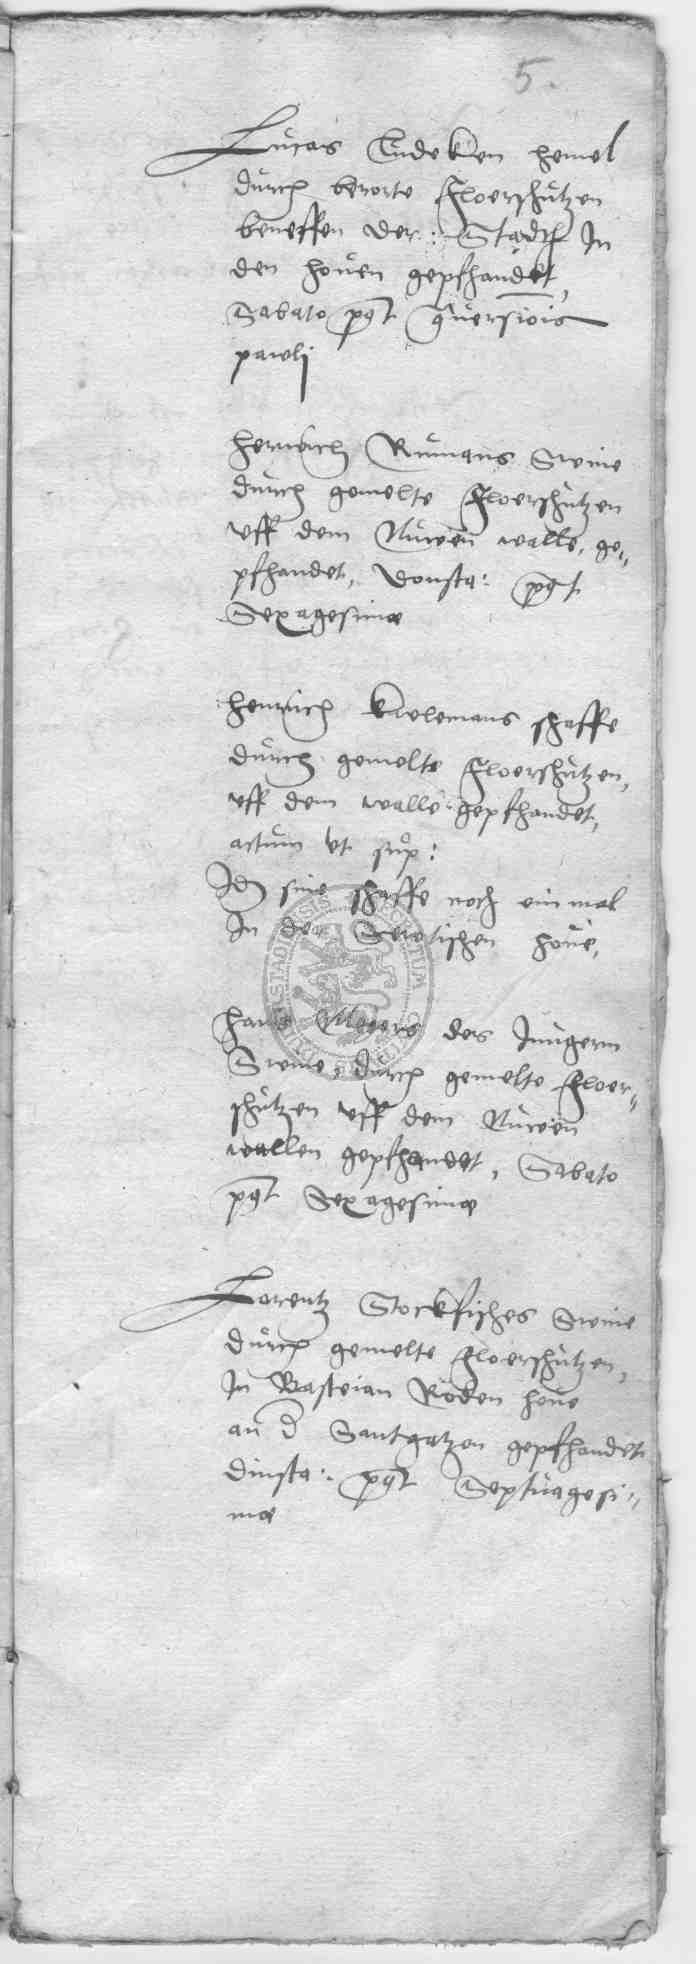 5.
Lucas Ludeken hemel
durch berorte Floerschutzen
beneffen der: Stadt In
den houen gepfhandet,
Sabato post Conuersiois
pauli
Henrich Rumans Sweine
durch gemelte Floerschutzen
vff dem Nuwen walle, ge„
pfhandet, Donsta: post
Sexagesimæ
Henrich kolemans schaffe
durch gemelte Floerschutzen,
vff dem walle gepfhandet,
actum vt sup:
Id sine schaffe noch ein mal
In der houe,
Hans Meyers des Jungern
Sweine, durch gemelte Floer„
schutzen vff dem Nuwen
wallen gepfhandet, Sabato
post Sexagesimæ
Lorentz Stockfisches Sweine
durch gemelte Floerschutzen,
In Basteian Roden houe
an d Santgatzen gepfhandet
dinsta: post Septuagesi„
mæ